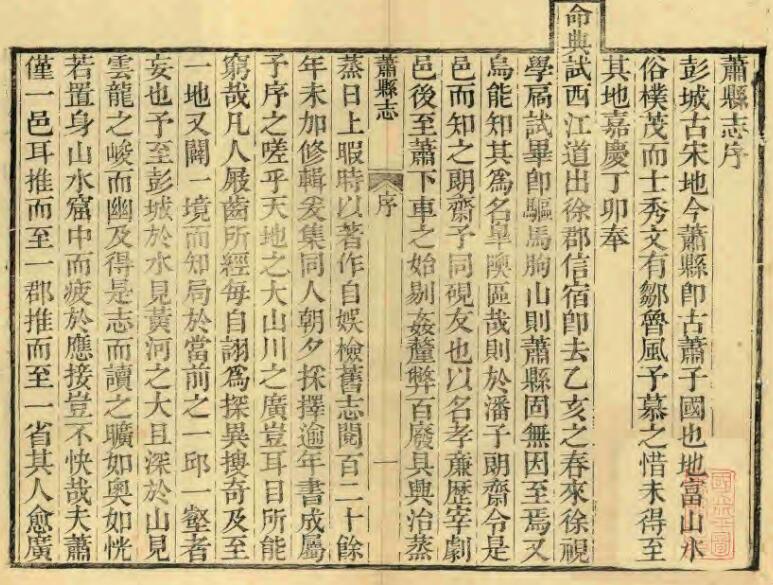 蕭縣志序
彭城古宋地今蕭縣卽古蕭子國也地富山水
俗樸茂而士秀文有鄒魯風予慕之惜未得至
其地嘉慶丁卯奉
命典試西江道出徐郡信宿卽去乙亥之春來徐視
學局試畢卽驅馬朐山則蕭縣固無因至焉又
烏能知其爲名阜隩區哉則於潘子朗齋令是
邑而知之朗齋予同硯友也以名孝廉歴宰劇
邑後至蕭下車之始剔姦釐弊百廢具興治蒸
蕭縣志
序
一
蒸日上暇時以著作自娛檢舊志閱百二十餘
年未加修輯爰集同人朝夕採擇逾年書成屬
予序之嗟乎天地之大山川之廣豈耳目所能
窮哉凡人屐齒所經每自詡爲探異搜奇及至
一地又闢一境而知局於當前之一邱一壑者
妄也予至彭城於水見黃河之大且深於山見
雲龍之峻而幽及得是志而讀之曠如奧如恍
若置身山水窟中而疲於應接豈不快哉夫蕭
僅一邑耳推而至一郡推而至一省其人愈廣